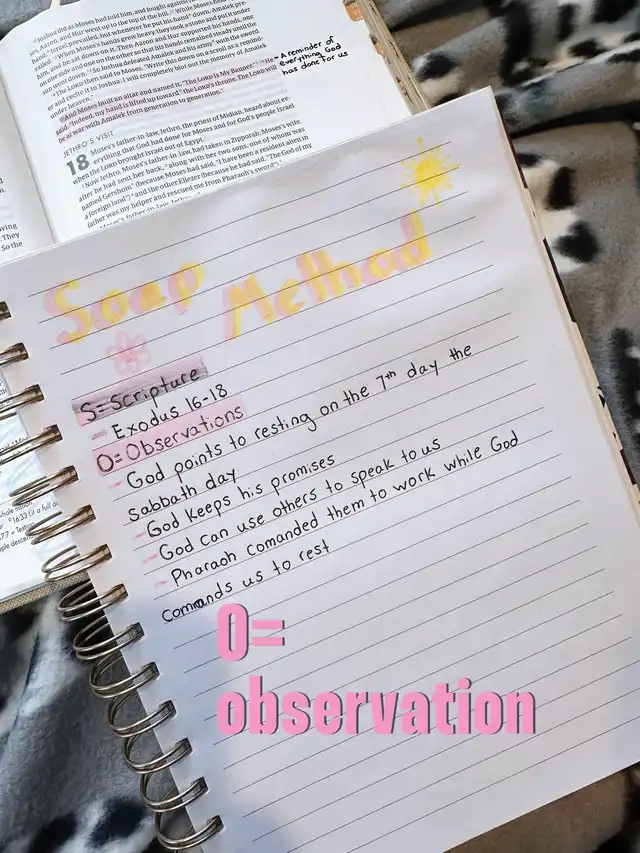 "Joshua did as Moses had told him, and fought against
Aaron, and Hur went up to the top of the hill. "While Moses held
hand, Israel prevailed, but whenever he put his hand down, Amalek pre-
vailed. "When Moses's hands grew heavy, they took a stone and put it under
him, and he sat down on it. Then Aaron and Hur supported his hands, one
on one side and one on the other so that his hands remained steady until the
sun went down. "So Joshua defeated Amalek and his army with the sword.
"The LORD then said to Moses, "Write this down on a scroll as a remind-
er and recite it to Joshua: I will completely blot out the memory of Amalek
under heaven."
"And Moses built an altar and named it, "The LORD Is My Banner." "He
said, "Indeed, my hand is lifted up toward the LORD's throne. The LORD will
be at war with Amalek from generation to generation."
-A reminder of
everything God
has done for us
JETHRO'S VISIT
18 Moses's father-in-law, Jethro, the priest of Midian, heard about ev-
erything that God had done for Moses and for God's people Israel
when the LORD brought Israel out of Egypt.
"Now Jethro, Moses's father-in-law, had taken in Zipporah, Moses's wife,
after he had sent her back, "along with her two sons, one of whom was
named Gershom (because Moses had said, "I have been a resident alien in
a foreign land") "and the other Eliezer (because he had said, "The God of my
father was my helper and rescued me from Pharaoh's sword").
"Moses's father-in-law, Jethro,
Soap Method
S=Scripture
- Exodus 16-18
O=Observations
- God points to resting on the 7th day the
sabbath day
- God keeps his promises
- God can use others to speak to us
- Pharaoh comanded them to work while God
commands us to rest
O=
observation